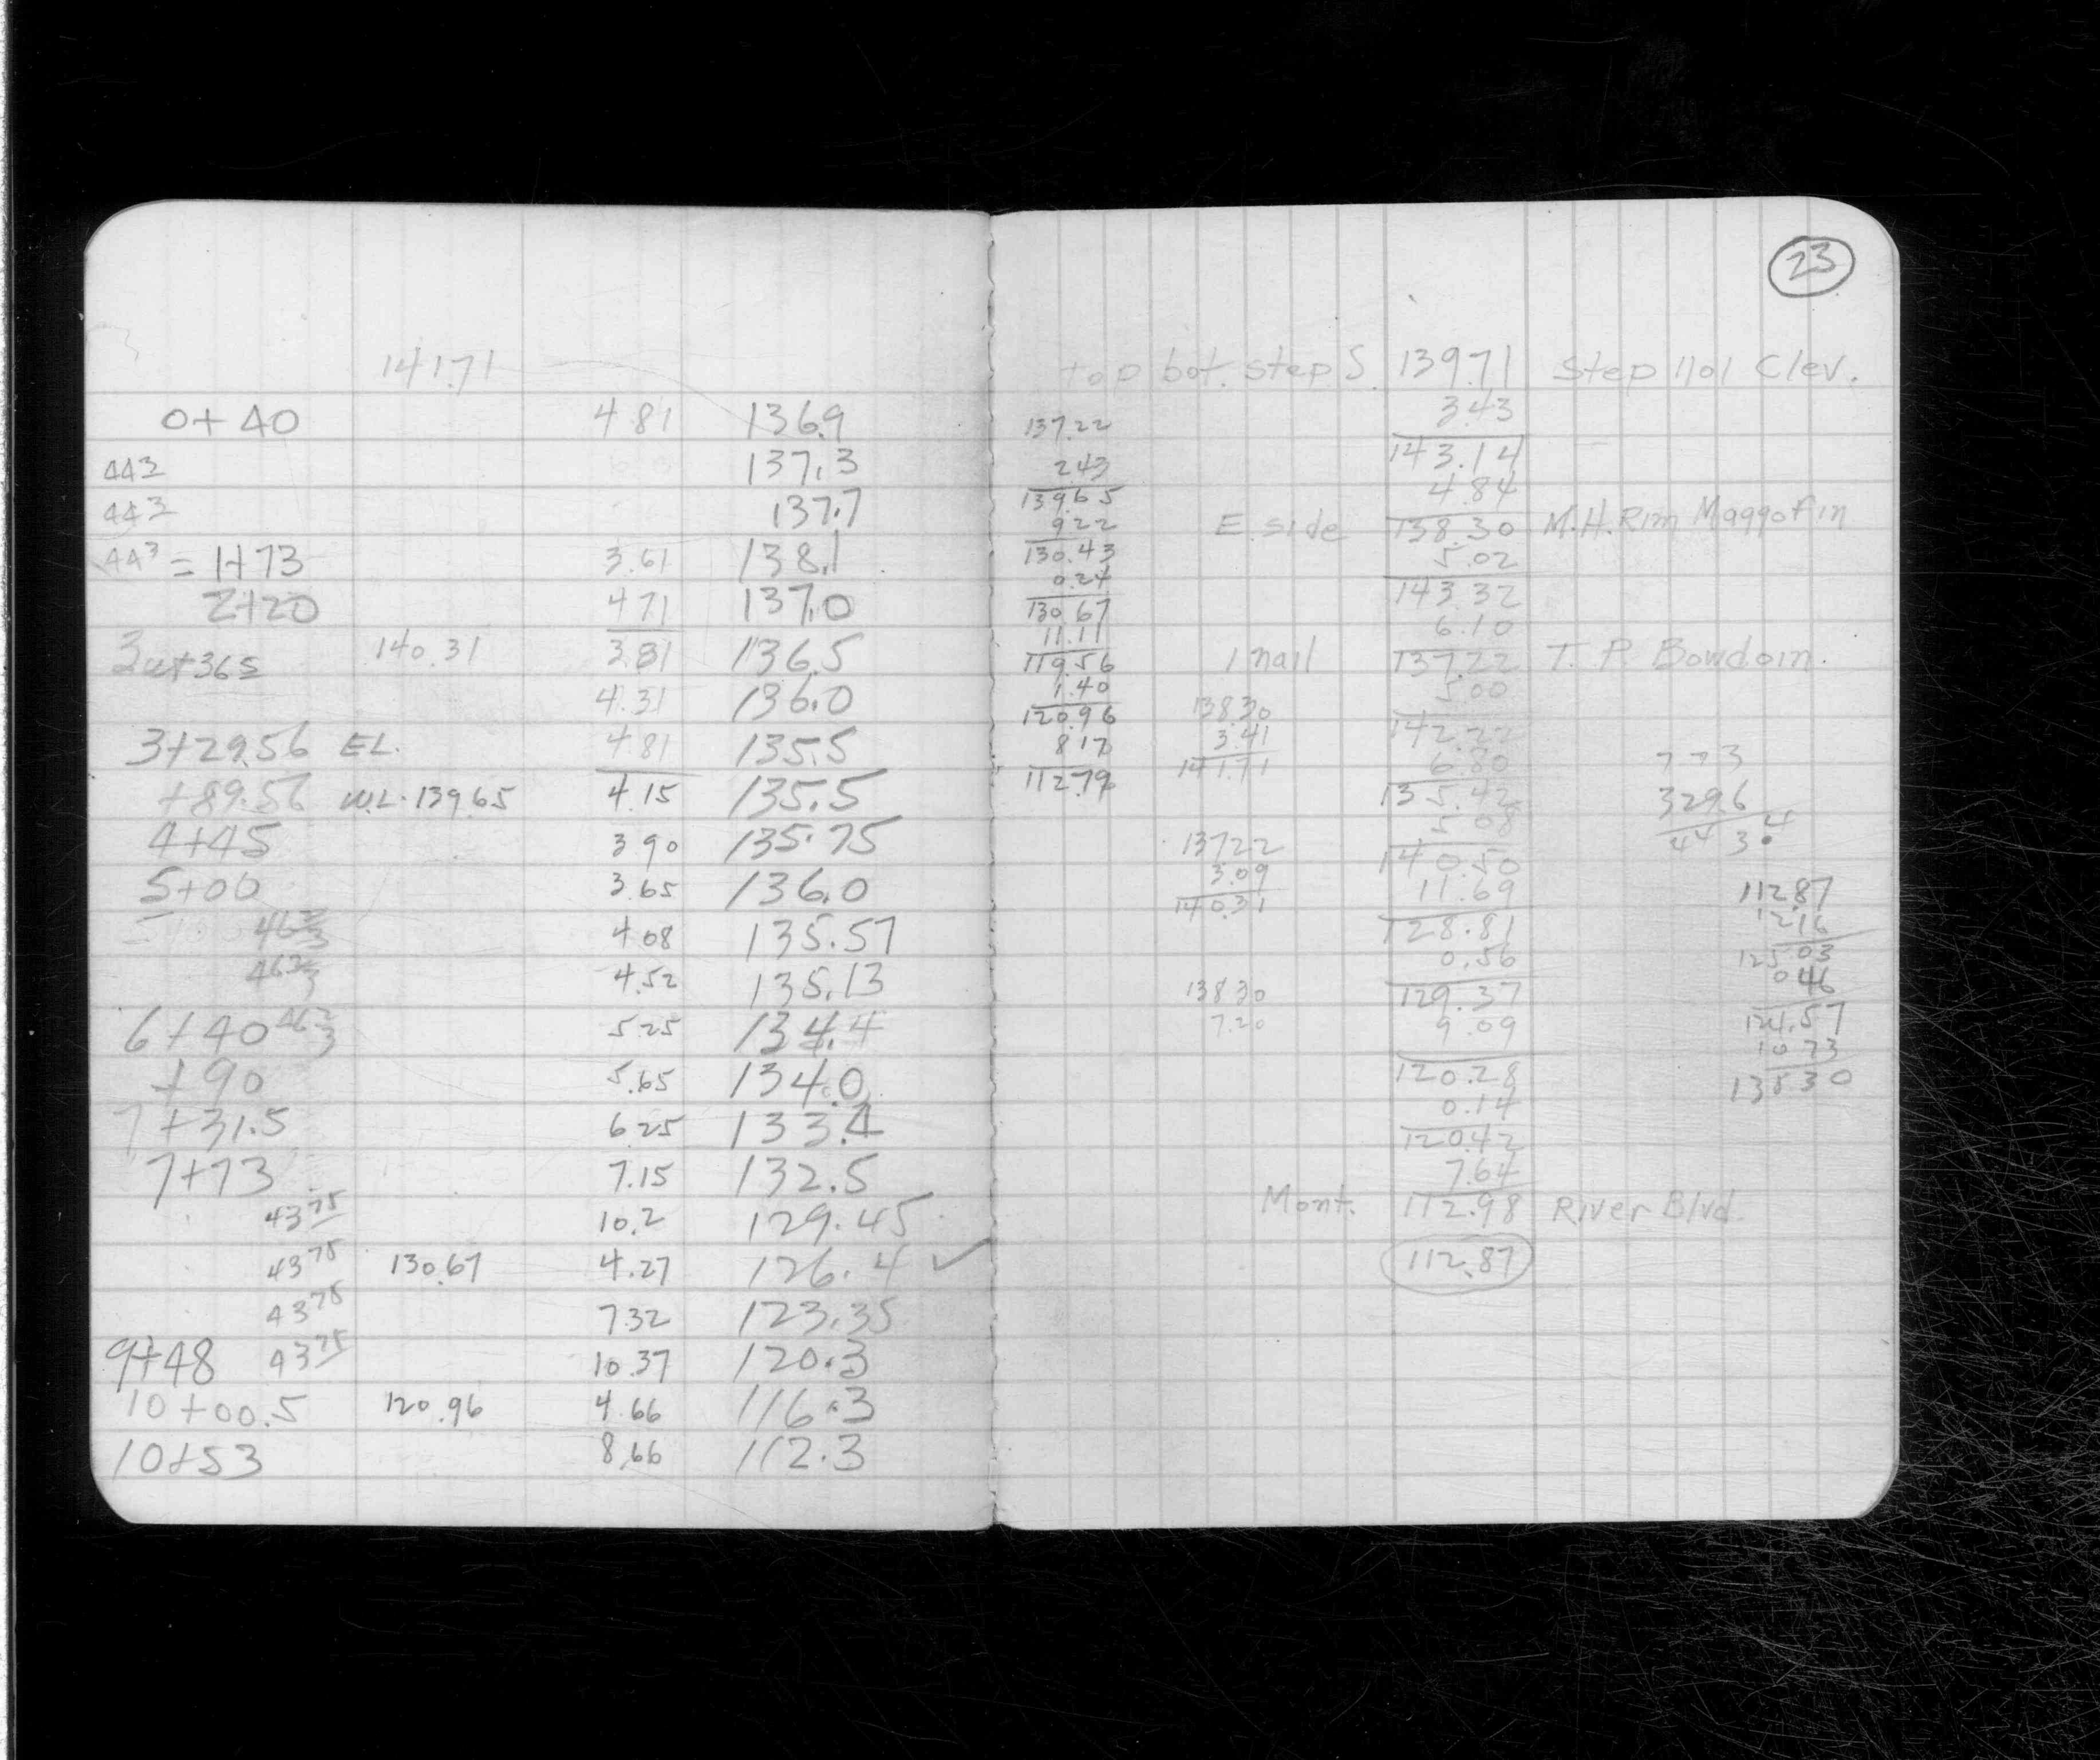 141.71
0+40 4.81 136.9
44³ 137.3
44³ 137.7
44³ = 1+73 3.61 138.1
2+20 4.71 137.0
140.31 3.81 136.5
4.31 136.0
3+29.56 EL. 4.81 135.5
+89.56 W.L. 139.65 4.15 135.5
4+45 3.90 135.75
5+00 3.65 136.0
46⅔ 4.08 135.57
46⅔ 4.52 135.13
6+40 46⅔ 5.25 134.4
+90 5.65 134.0
7+31.5 6.25 133.4
7+73 7.15 132.5
43⁷⁵ 10.2 129.45
43⁷⁵ 130.67 4.27 126.4 ✓
43⁷⁵ 7.32 123.35
9+48 43⁷⁵ 10.37 120.3
10+00.5 120.96 4.66 116.3
10+53 8.66 112.3
23
top bot. step S. 139.71 Step 1101 Clev.
3.43
143.14
4.84
E. side 138.30 M.H. Rim Maggofin
5.02
143.32
6.10
1 nail 137.22 T. P. Bowdoin.
5.00
142.22
6.80
135.42
5.08
140.50
11.69
128.81
0.56
129.37
9.09
120.28
0.14
120.42
7.64
Mont. 112.98 River Blvd.
112.87
137.22
2.43
139.65
9.22
130.43
0.24
130.67
11.11
119.56
1.40
120.96
8.17
112.79
138.30
3.41
141.71
137.22
3.09
140.31
138.30
7.20
773
329.6
443.4
112.87
12.16
125.03
046
124.57
138.30